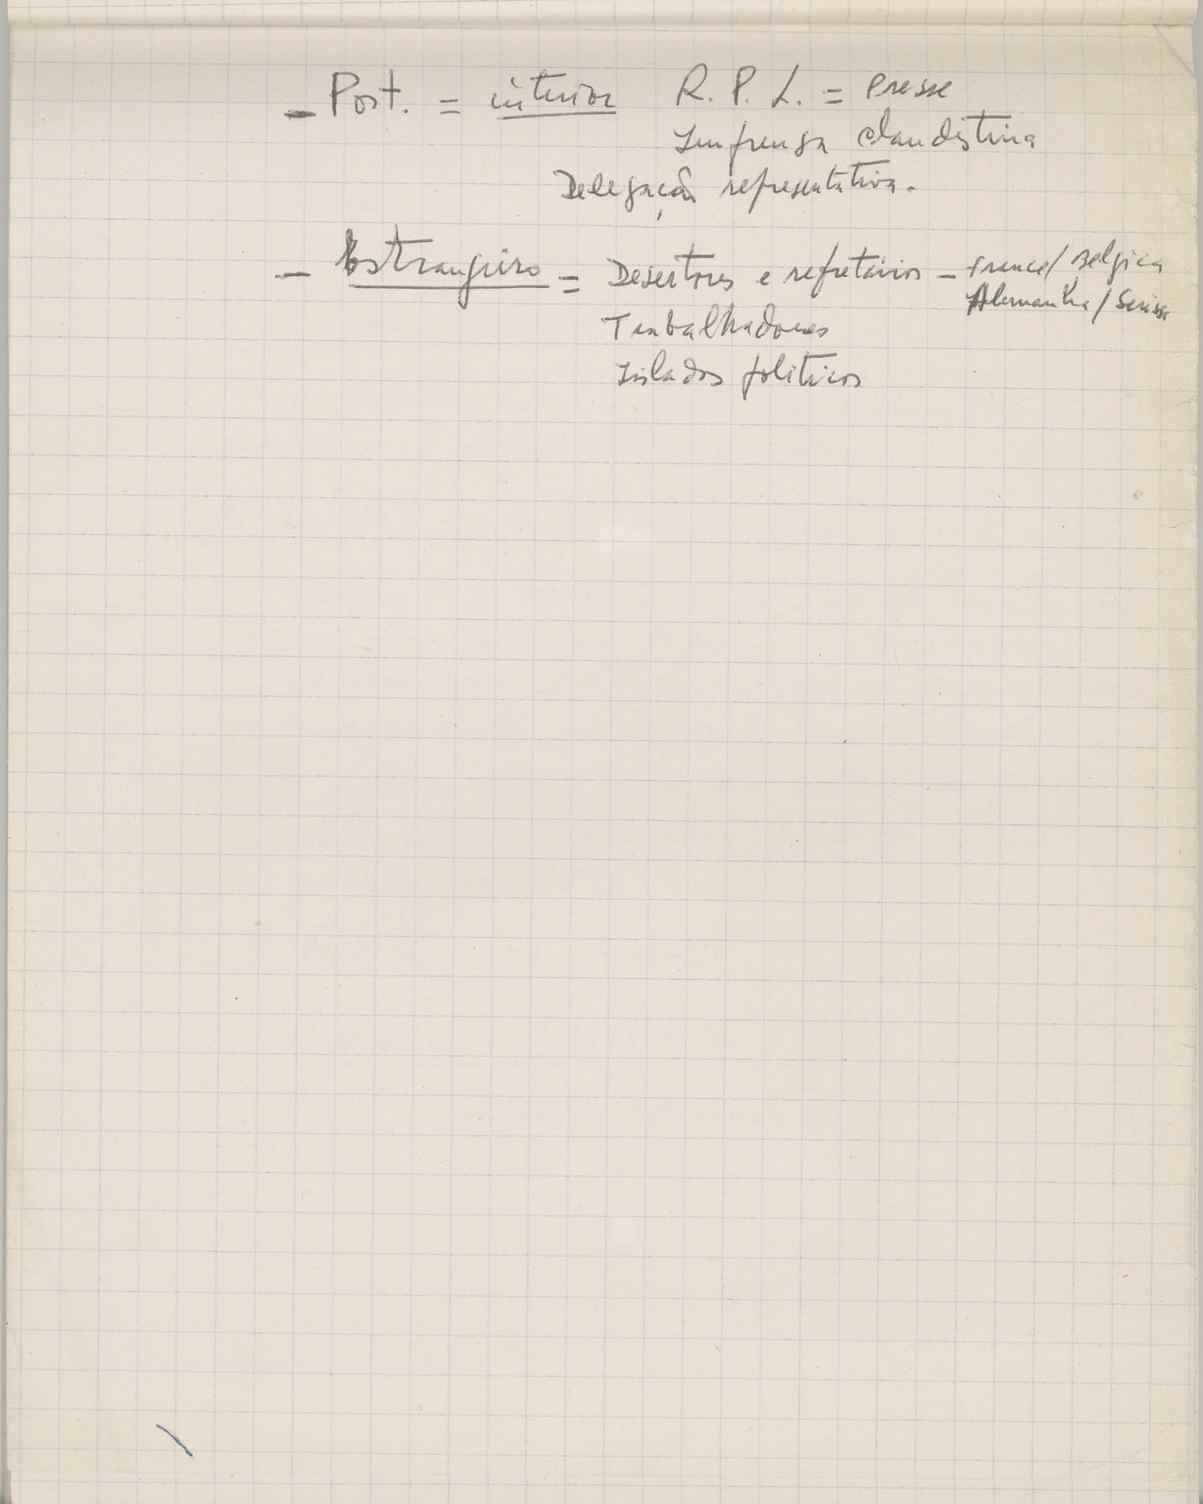 - Port. = interior R. P. L. = Presse
Imprensa clandestina
Delegação representativa.
- Estrangeiro = Desertores e refretários - France/Belgica
Alemanha/Suissa
Trabalhadores
Isilados politicos